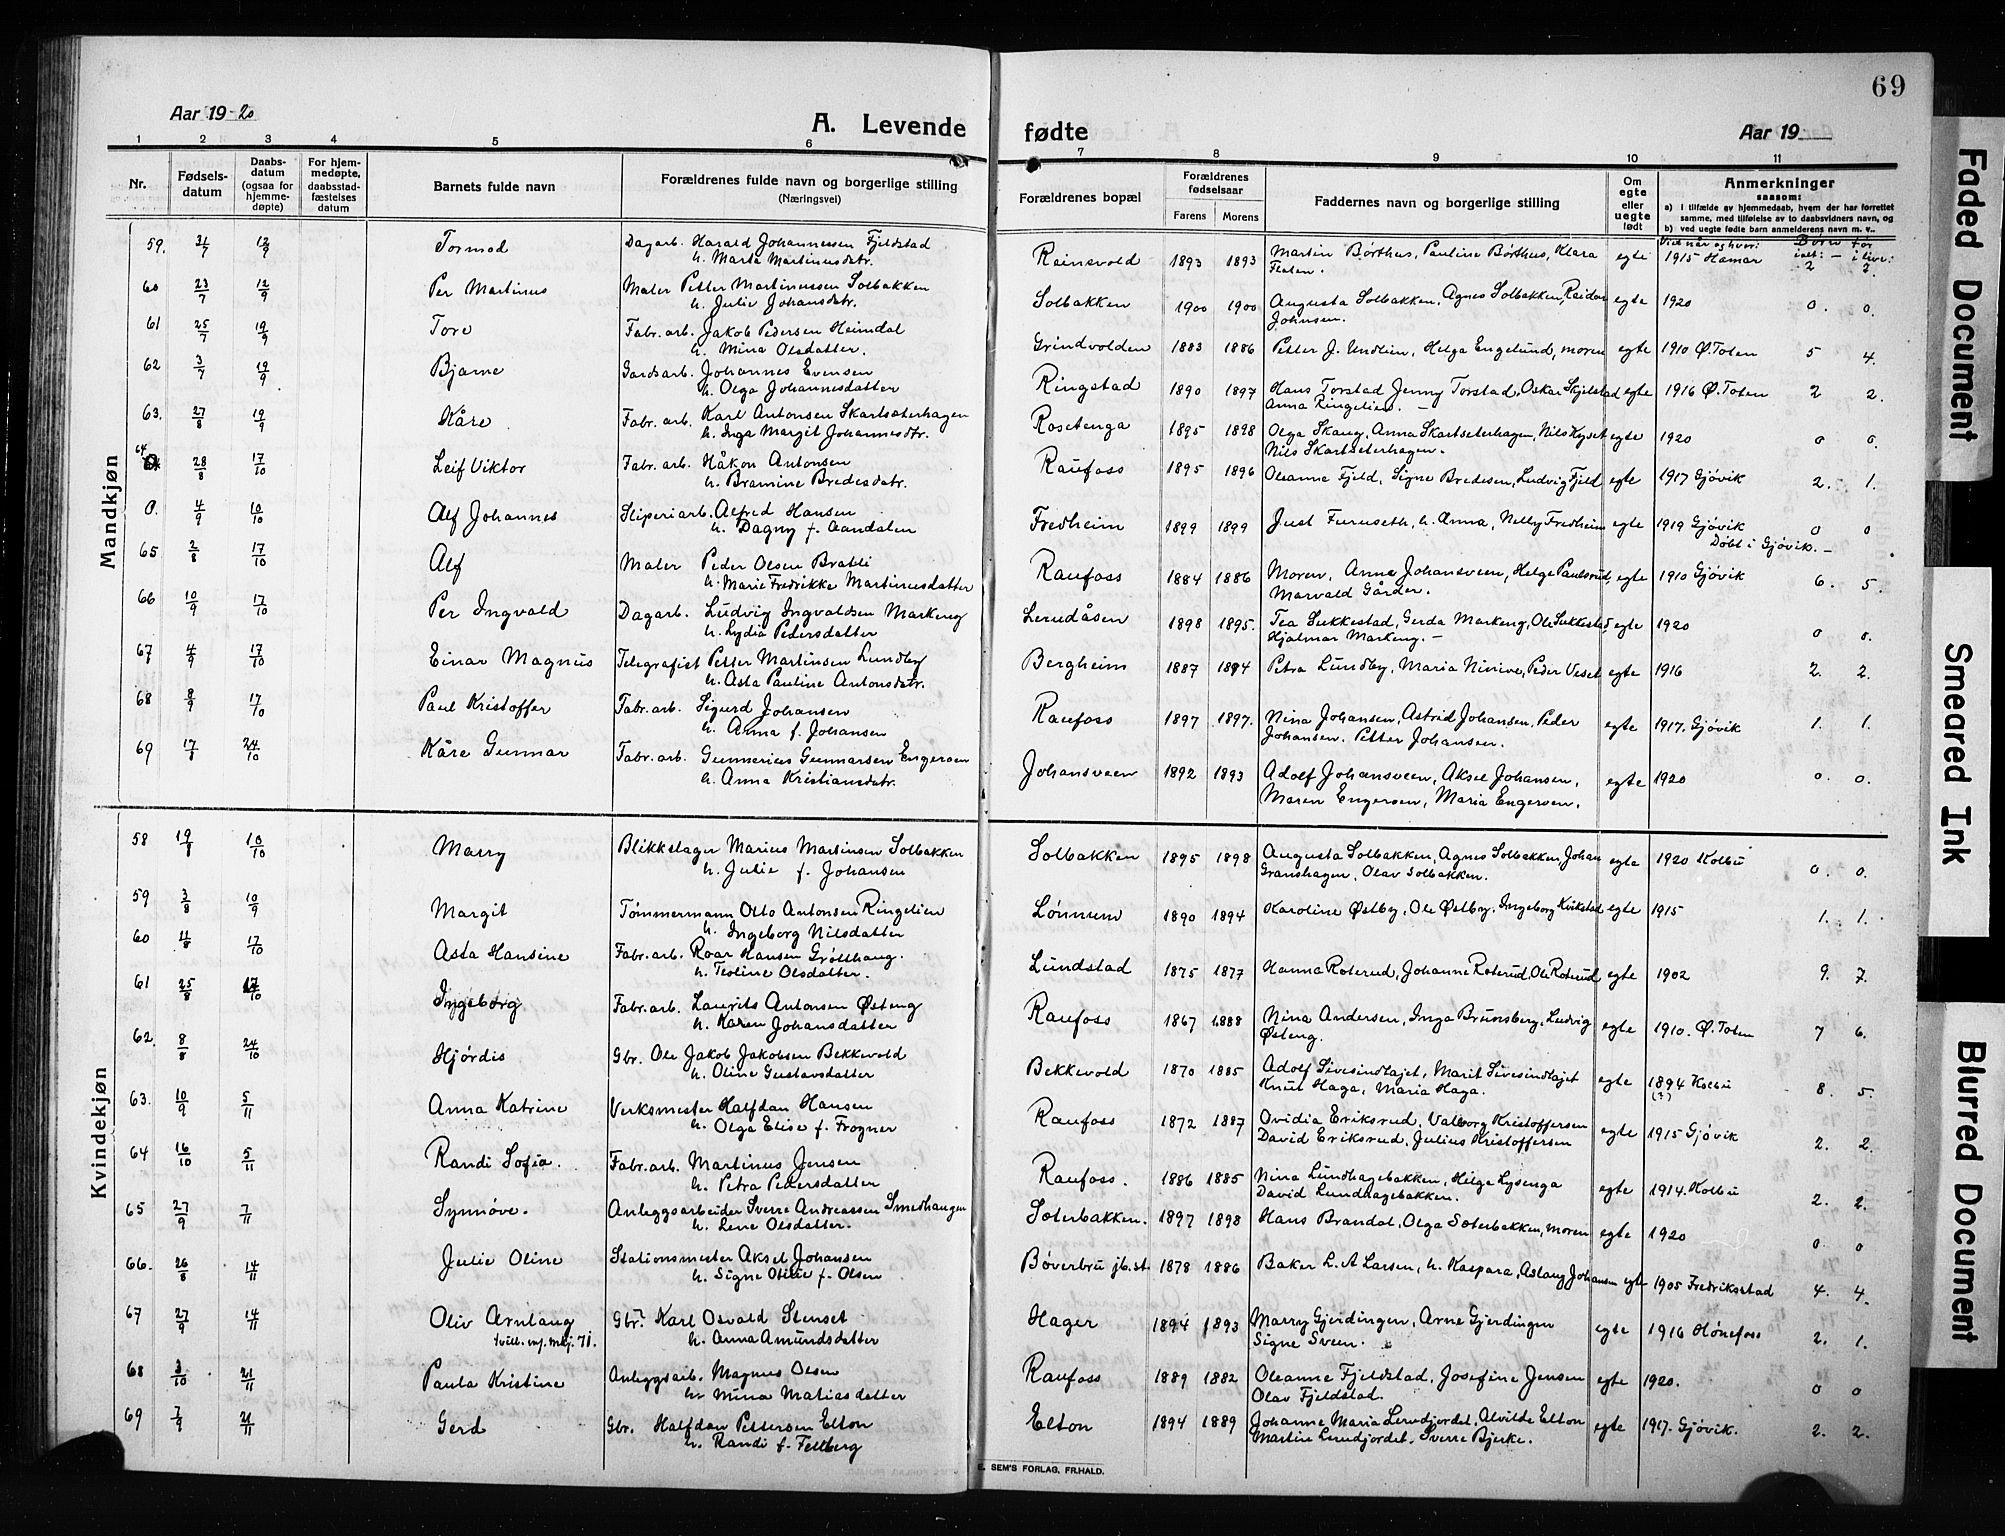 69
Aar 19-20
A. Levende
fødte
Aar 19
1 2 3 4 5 6 7 8 9 10 11
Nr.
Fødsels-
datum
Daabs-
datum
(ogsaa for
hjemme-
døpte)
For hjem-
medøpte,
daabsstad-
fæstelses
datum
Barnets fulde navn
Forældrenes fulde navn og borgerlige stilling
(Næringsvei)
Forældrenes bopæl
Forældrenes
fødselsaar
Farens Morens
Faddernes navn og borgerlige stilling
Om
egte
eller
uegte
født
Anmerkninger
saasom:
a) i tilfælde av hjemmedaab, hvem der har forrettet
samme, med tilføielse av to daabsvidners navn, og
b) ved uegte fødte børn anmelderens navn m. v..
Viet når og hvor: Børn før
ialt: – i live:
Mandkjøn
59. 31/7 12/9 Tormod Dagarb. Harald Johannessen Fjeldstad Reinsvold 1893 1893 Martin Børthus, Pauline Børthus, Klara egte 1915 Hamar 2
h. Marta Martinusdatr. Flaten.
60 23/7 12/9 Per Martinus Maler Petter Martinussen Solbakken Solbakken 1900 1900 Augusta Solbakken, Agnes Solbakken, Reidar egte 1920 0. 0.
h. Julie Johansdatr. Johnsen.
61 25/7 19/9 Tore Fabr. arb. Jakob Pedersen Heimdal Grindvolden 1883 1886 Petter J. Undlien, Helga Engelund, moren egte 1910 Ø. Toten 5 4.
h. Mina Olsdatter.
62 3/7 19/9 Bjarne Gardsarb. Johannes Evensen Ringstad 1890 1897 Hans Torstad Jenny Torstad, Oskar Skjelstad egte 1916 Ø. Toten 2 2.
h. Olga Johannesdatter Anna Ringelien. –
63. 27/8 19/9 Kåre Fabr. arb. Karl Antonsen Skartseterhagen Rosetenga 1895 1898 Olga Skaug, Anna Skartseterhagen, Nils Kyset egte 1920 0 0.
h. Inga Margit Johannesdtr. Nils Skartseterhagen.
64 28/8 17/10 Leif Viktor Fabr. arb. Håkon Antonsen Raufoss 1895 1896 Oleanna Fjeld, Signe Bredesen, Ludvig Fjeld egte 1917 Gjøvik 2. 1.
h. Bramine Bredesdatr.
0. 4/9 10/10 Alf Johannes Sliperiarb. Alfred Hansen Fredheim 1899 1899 Just Furuseth, h. Anna, Nelly Fredheim egte 1919 Gjøvik 0 0
h. Dagny f. Aandalen Døbt i Gjøvik. –
65 2/8 17/10 Alf Maler Peder Olsen Bratli Raufoss 1884 1886 Moren, Anna Johansveen, Helge Paulsrud, egte 1910 Gjøvik 6. 5.
h. Marie Fredrikke Martinusdatter Marvald Gårder.
66 10/9 17/10 Per Ingvald Dagarb. Ludvig Ingvaldsen Markeng Lerudåsen 1898 1895. Tea Sukkestad, Gerda Markeng, Ole Sukkestad, egte 1920 0 0.
h. Lydia Pedersdatter Hjalmar Markeng. –
67 4/9 17/10 Einar Magnus Telegrafist Petter Martinsen Lundby Bergheim 1887 1894 Petra Lundby, Maria Ninive, Peder Veset egte 1916 2. 2.
h. Asta Pauline Antonsdatr.
68 8/9 17/10 Paul Kristoffer Fabr. arb. Sigurd Johansen Raufoss 1897 1897. Nina Johansen, Astrid Johansen, Peder egte 1917. Gjøvik 1. 1.
h. Anna f. Johansen Johansen. Petter Johansen.
69 17/8 24/10 Kåre Gunnar Fabr. arb. Gunnerius Gunnarsen Engersen Johansveen 1892 1893 Adolf Johansveen, Aksel Johansen, egte 1920 0. 0.
h. Anna Kristiansdatr. Maren Engersen, Maria Engersen.
Kvindekjøn
58 19/8 10/10 Marry Blikkslager Marius Martinsen Solbakken Solbakken 1895 1898 Augusta Solbakken, Agnes Solbakken, Johan egte 1920 Kolbu 0. 0.
h. Julie f. Johansen Granshagen, Olav Solbakken.
59 3/8 10/9 Margit Tømmermann Otto Antonsen Ringelien Lønnum 1890 1894 Karoline Østby, Ole Østby, Ingeborg Kvikstad egte 1915 1. 1.
h. Ingeborg Nilsdatter
60 11/8 17/10 Asta Hansine Fabr. arb. Roar Hansen Grøtthaug. Lundstad 1875 1877 Hanna Roterud, Johanne Roterud, Ole Roterud egte 1902 9. 7.
h. Teoline Olsdatter.
61 25/8 17/10 Ingeborg Fabr. arb. Laurits Antonsen Østeng Raufoss 1867 1888 Nina Andersen, Inga Brunsberg, Ludvig egte 1910. Ø. Toten 7 6.
h. Karen Johansdatter Østeng.
62. 8/8 24/10 Hjørdis Gbr. Ole Jakob Jakobsen Bekkevold Bekkevold 1870 1885 Adolf Sivesindtajet, Marit Sivesindtajet egte 1894 Kolbu 8. 5.
h. Oline Gustavsdatter Knut Haga, Maria Haga. (?)
63. 10/9 5/11 Anna Katrine Verksmester Halfdan Hansen Raufoss 1872 1887 Ovidia Eriksrud, Valborg Kristoffersen egte 1915 Gjøvik 2. 2.
h. Olga Elise f. Frogner David Eriksrud, Julius Kristoffersen
64 16/10 5/11 Randi Sofia. Fabr. arb. Martinus Jensen Raufoss. 1886 1885 Nina Lundhagebakken, Helga Lysenga egte 1914. Kolbu 2. 2.
h. Petra Pedersdatter David Lundhagebakken.
65 27/9 7/11 Synnøve. Anleggsarbeider Sverre Andreassen Smedhaugen Seterbakken. 1897 1898 Hans Brandal, Olga Seterbakken, moren egte 1920 0. 0
h. Lene Olsdatter.
66. 26/8 14/11 Julie Oline Stationsmester Aksel Johansen Bøverbru jb.st. 1878 1886 Baker L. A Larsen, h. Kaspara, Aslaug Johansen egte 1905 Fredriksstad 4. 4.
h. Signe Otilie f. Olsen
67 27/9 14/11 Oliv Arnlaug Gbr. Karl Osvald Stenset Hager 1894 1893 Marry Gjerdingen, Arne Gjerdingen egte 1916 Hønefoss 2. 1.
tvill. m. mkj. 71. h. Anna Amundsdatter Signe Sveen.
68 3/10 21/11 Paula Kristine Anleggsarb. Magnus Olsen Raufoss 1889 1882 Oleanne Fjeldstad, Josefine Jensen egte 1920. 0 0
h. Mina Matiasdatter Olav Fjeldstad.
69 7/9 21/11 Gerd Gbr. Halfdan Pettersen Elton Elton 1894 1889 Johanne Maria Lerudjordet, Alvilde Elton egte 1917. Gjøvik. 2. 2.
h. Randi f. Fellberg Martin Lerudjordet, Sverre Bjerke.
E. SEM'S FORLAG, FR.HALD.
Faded Document
Smeared Ink
Blurred Document